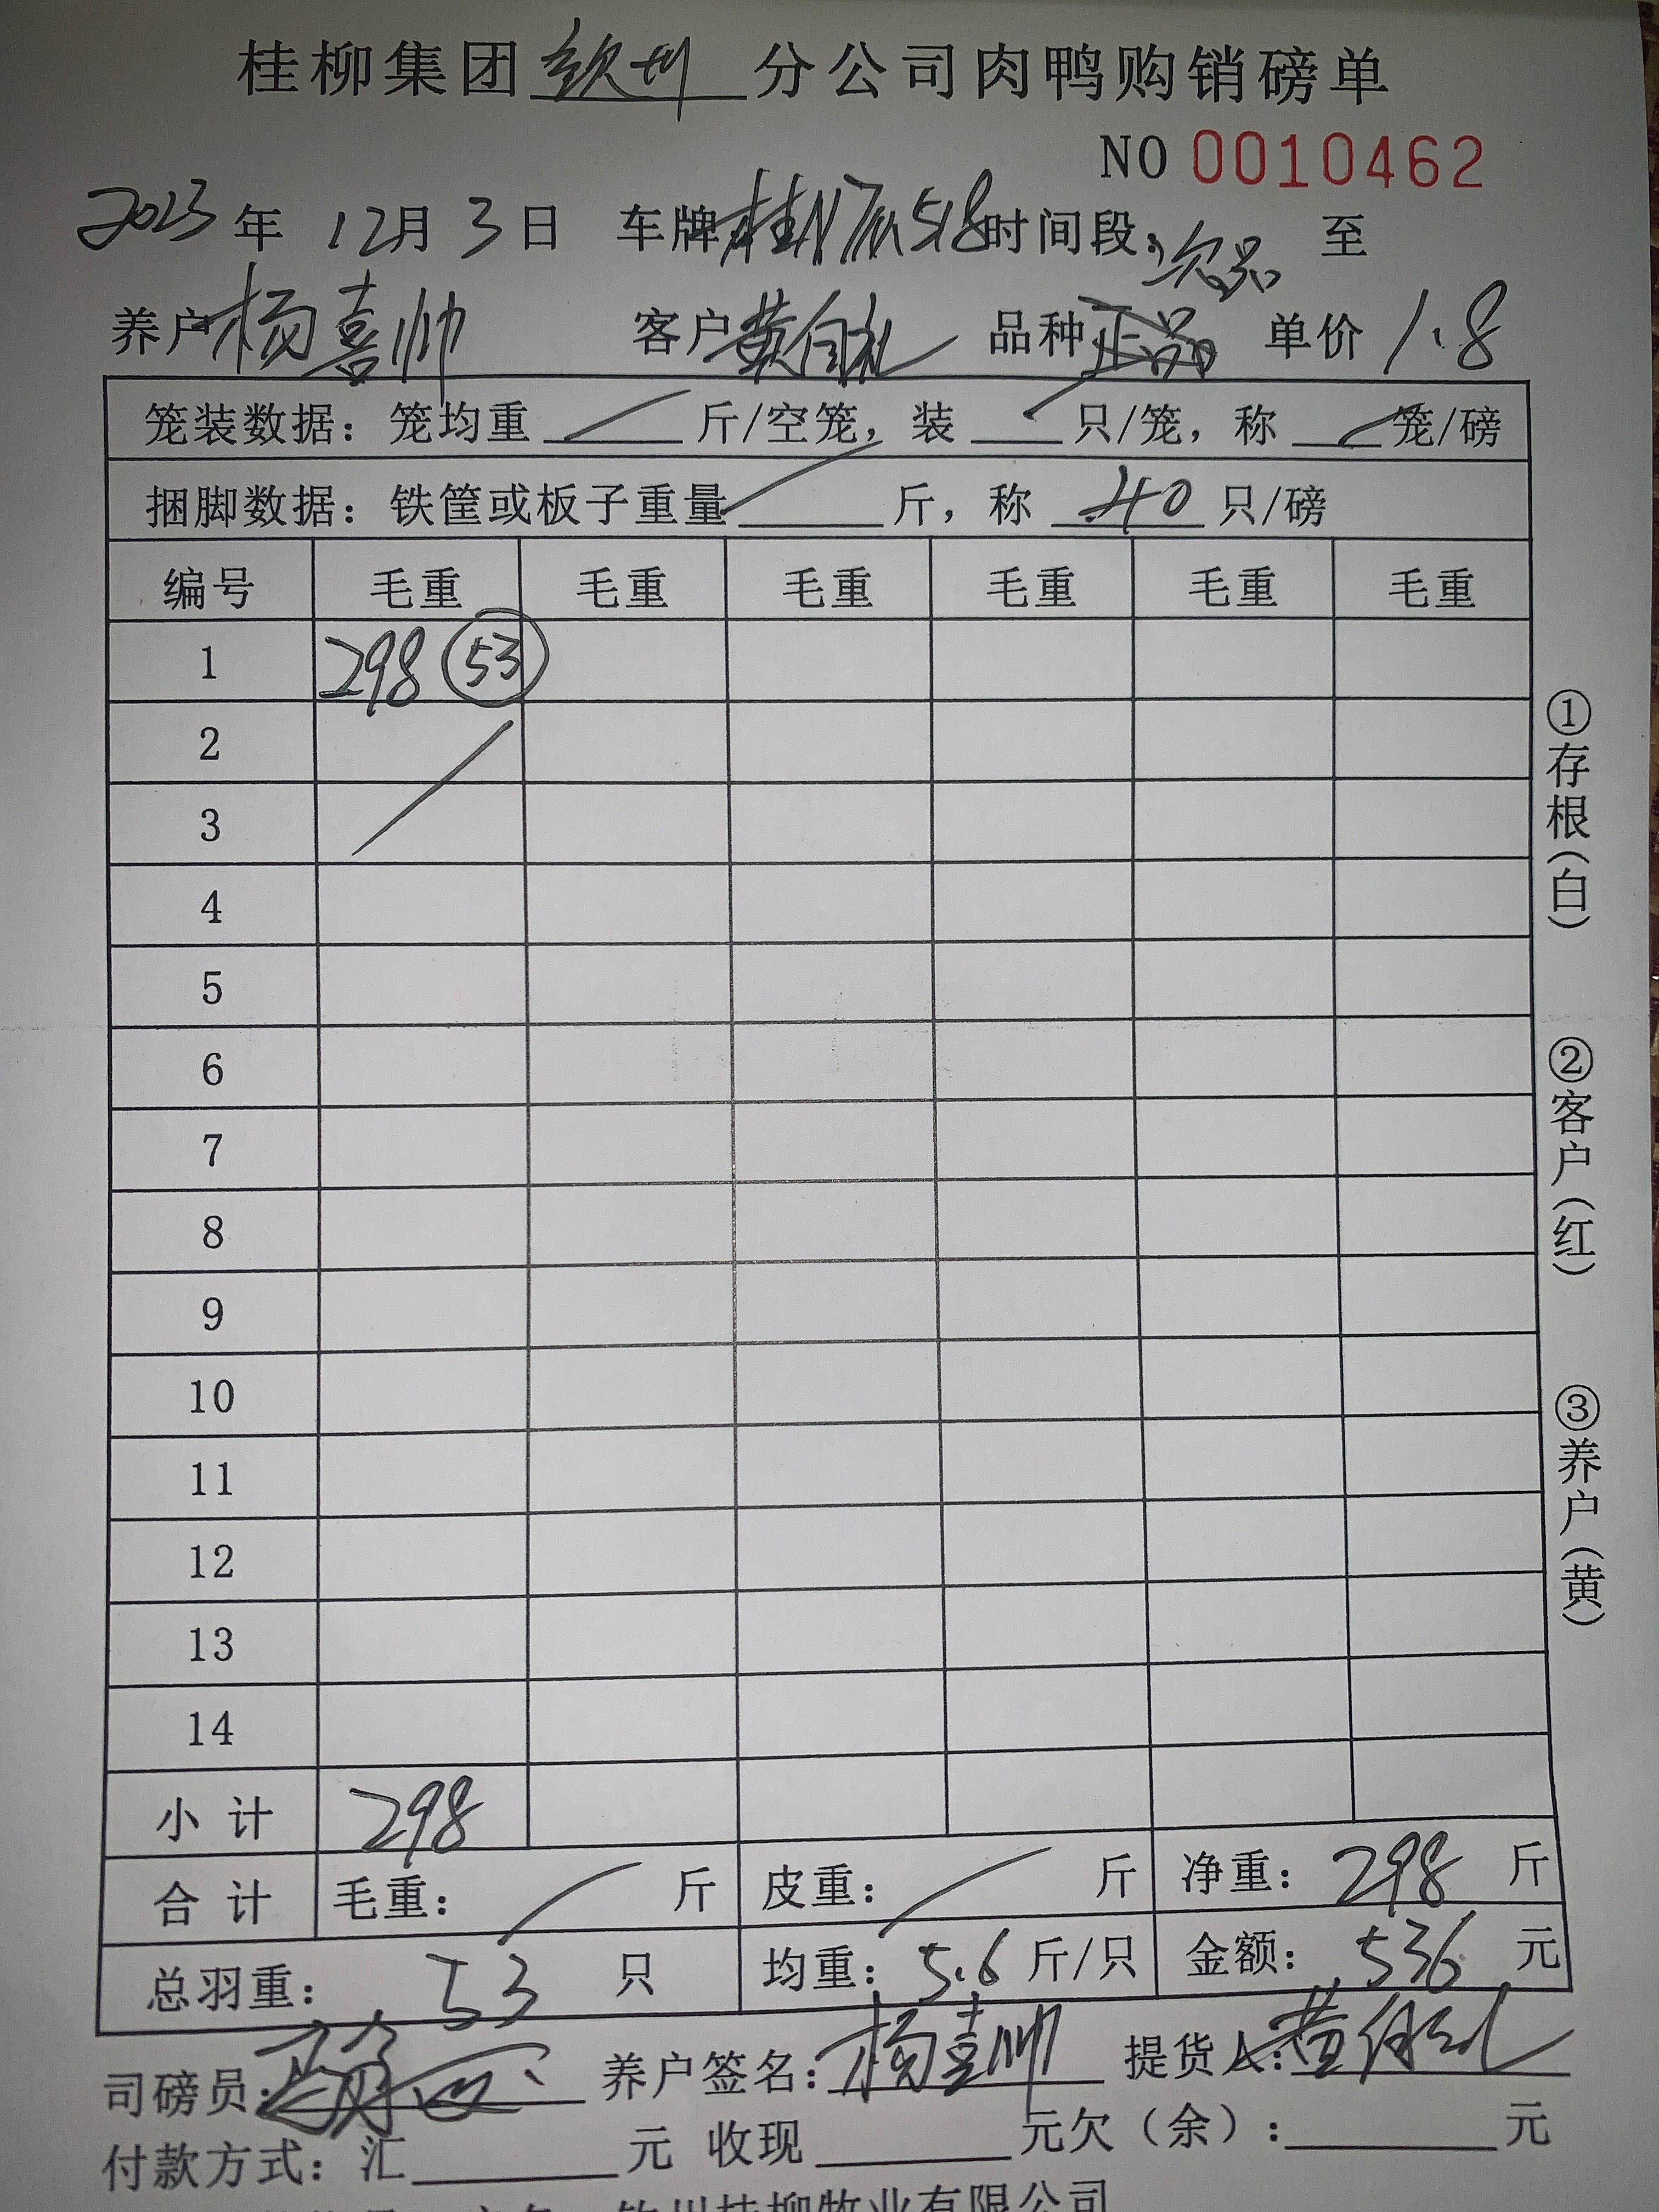 桂柳集团 钦州 分公司肉鸭购销磅单
NO 0010462
2023 年 12月 3日 车牌 桂N 518 时间段: 至
次品
养户 杨喜帅 客户 黄 礼 品种 正品 单价 1.8
笼装数据：笼均重 / 斤/空笼，装 / 只/笼，称 / 笼/磅
捆脚数据：铁筐或板子重量 / 斤，称 40 只/磅
编号 毛重 毛重 毛重 毛重 毛重 毛重
1 298 53
2
3
4
5
6
7
8
9
10
11
12
13
14
小计 298
合计 毛重： / 斤 皮重： / 斤 净重：298 斤
总羽重：53 只 均重：5.6 斤/只 金额：536 元
司磅员: 养户签名:杨喜帅 提货人:黄 礼
付款方式：汇 元 收现 元欠（余）: 元
钦州桂柳牧业有限公司
①存根（白）
②客户（红）
③养户（黄）